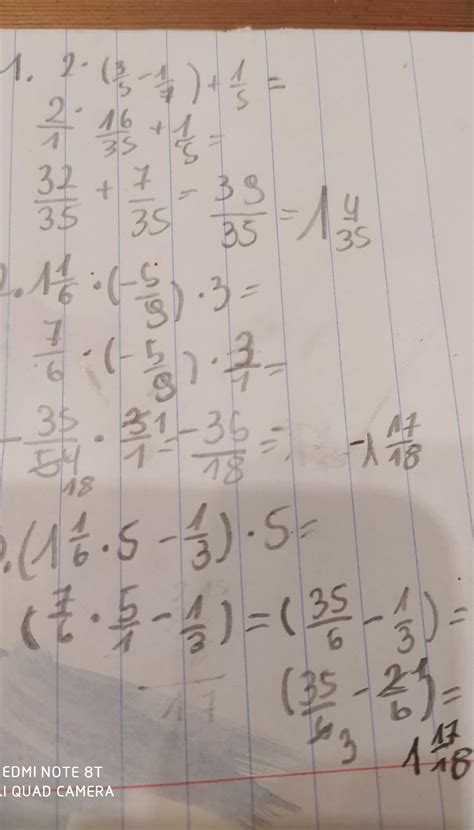 1. 2 · (3/5 - 1/7) + 1/5 =
2/1 · 16/35 + 1/5 =
32/35 + 7/35 = 39/35 = 1 4/35
2. 1 1/6 · (-5/9) · 3 =
7/6 · (-5/9) · 3/1 =
- 35/54 18 · 3 1/1 = - 35/18 = - 1 17/18
(1 1/6 · 5 - 1/3) · 5 =
(7/6 · 5/1 - 1/3) = (35/6 - 1/3) =
17 (35/6 3 - 2 1/6) =
1 17/18
REDMI NOTE 8T
AI QUAD CAMERA